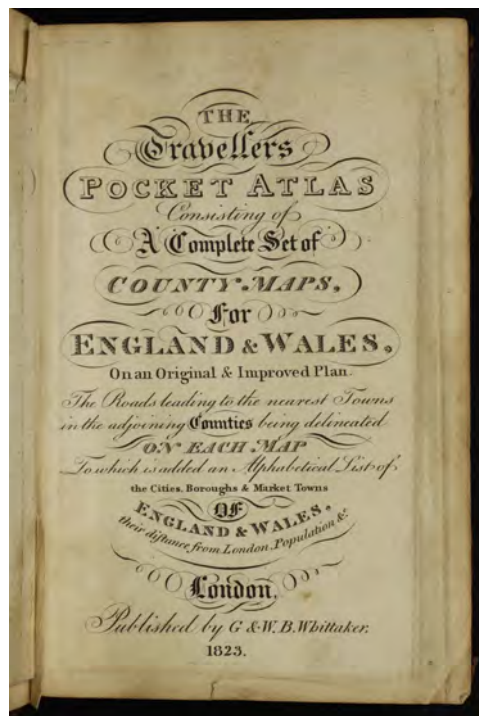 THE
Travellers
POCKET ATLAS
Consisting of
A Complete Set of
COUNTY MAPS,
For
ENGLAND & WALES,
On an Original & Improved Plan.
The Roads leading to the nearest Towns
in the adjoining Counties being delineated
ON EACH MAP
To which is added an Alphabetical List of
the Cities, Boroughs & Market Towns
OF
ENGLAND & WALES,
their distance from London, Population &c.
London,
Published by G & W. B. Whittaker.
1823.